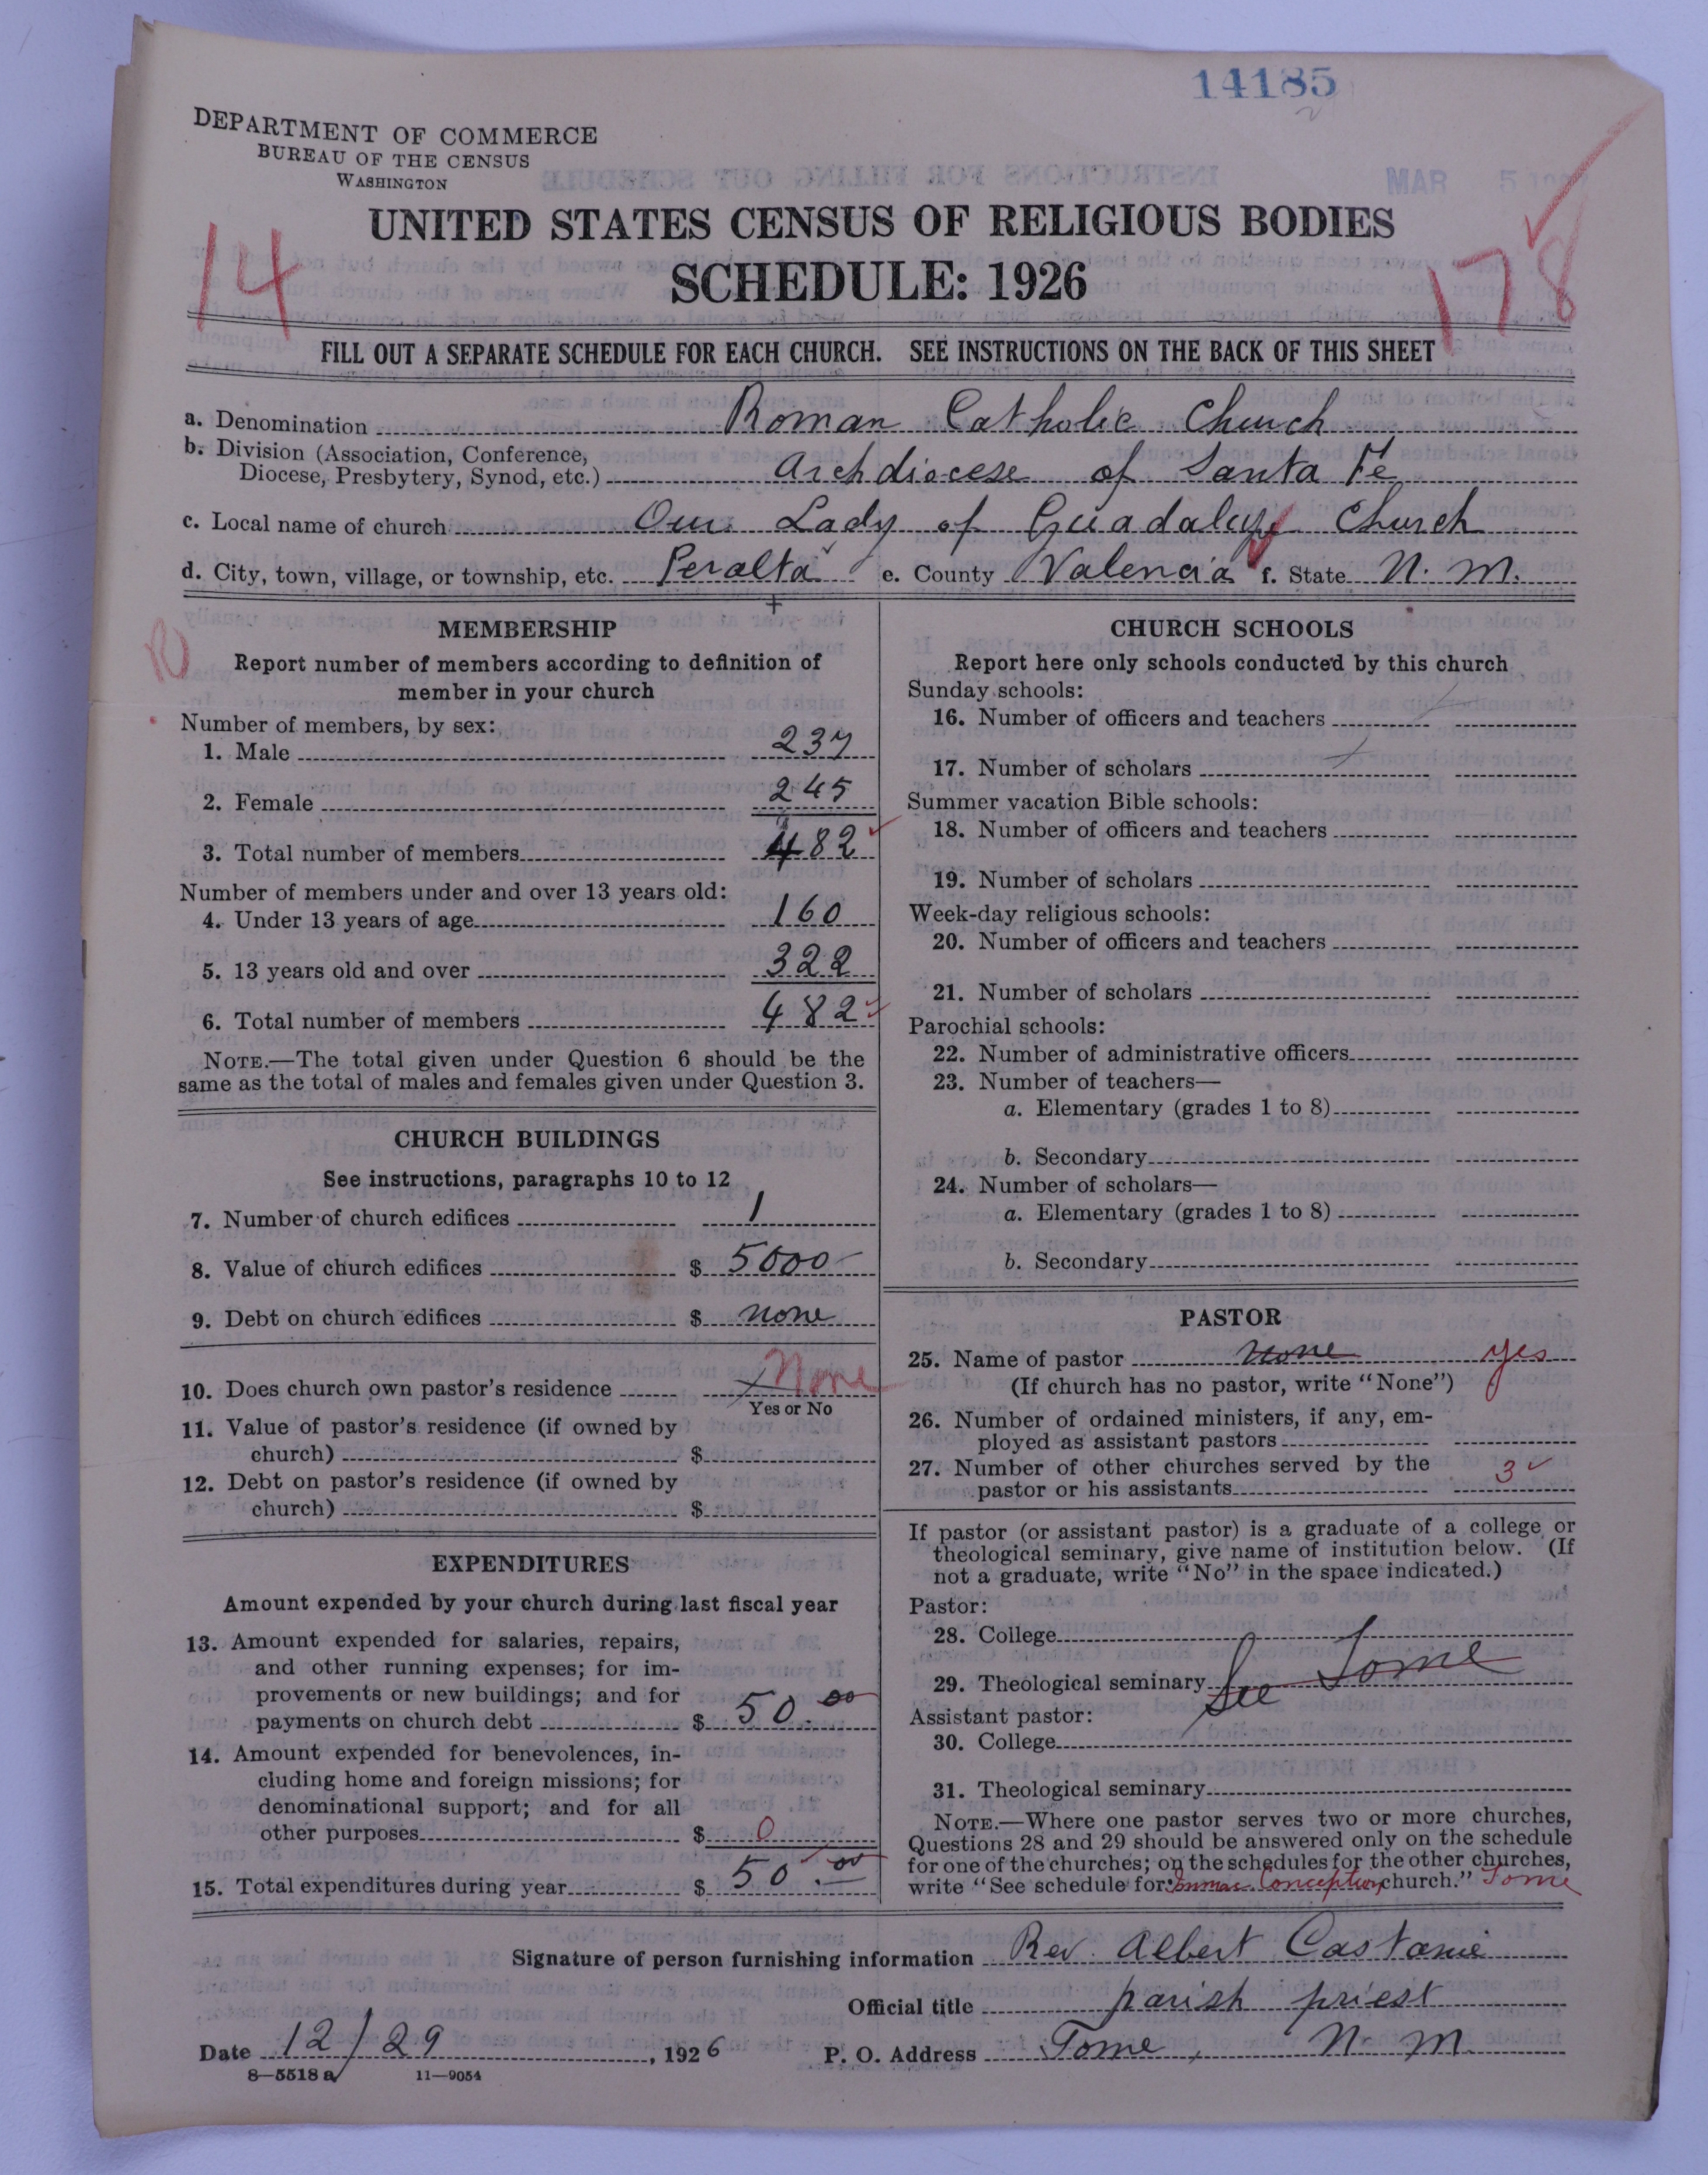 14185
DEPARTMENT OF COMMERCE
BUREAU OF THE CENSUS
WASHINGTON
MAR 5
UNITED STATES CENSUS OF RELIGIOUS BODIES
SCHEDULE: 1926
14
178
FILL OUT A SEPARATE SCHEDULE FOR EACH CHURCH. SEE INSTRUCTIONS ON THE BACK OF THIS SHEET
a. Denomination Roman Catholic Church
b. Division (Association, Conference,
Diocese, Presbytery, Synod, etc.) Archdiocese of Santa Fe
c. Local name of church Our Lady of Guadalupe Church
d. City, town, village, or township, etc. Peralta e. County Valencia f. State N. M.
MEMBERSHIP
Report number of members according to definition of
member in your church
Number of members, by sex:
1. Male 237
2. Female 245
3. Total number of members 482
Number of members under and over 13 years old:
4. Under 13 years of age 160
5. 13 years old and over 322
6. Total number of members 482
NOTE.—The total given under Question 6 should be the
same as the total of males and females given under Question 3.
CHURCH BUILDINGS
See instructions, paragraphs 10 to 12
7. Number of church edifices 1
8. Value of church edifices $ 5000
9. Debt on church edifices $ none
10. Does church own pastor's residence None
Yes or No
11. Value of pastor's residence (if owned by
church) $
12. Debt on pastor's residence (if owned by
church) $
EXPENDITURES
Amount expended by your church during last fiscal year
13. Amount expended for salaries, repairs,
and other running expenses; for im-
provements or new buildings; and for
payments on church debt $ 50.00
14. Amount expended for benevolences, in-
cluding home and foreign missions; for
denominational support; and for all
other purposes $ 0
15. Total expenditures during year $ 50.00
CHURCH SCHOOLS
Report here only schools conducted by this church
Sunday schools:
16. Number of officers and teachers
17. Number of scholars
Summer vacation Bible schools:
18. Number of officers and teachers
19. Number of scholars
Week-day religious schools:
20. Number of officers and teachers
21. Number of scholars
Parochial schools:
22. Number of administrative officers
23. Number of teachers—
a. Elementary (grades 1 to 8)
b. Secondary
24. Number of scholars—
a. Elementary (grades 1 to 8)
b. Secondary
PASTOR
25. Name of pastor none yes
(If church has no pastor, write "None")
26. Number of ordained ministers, if any, em-
ployed as assistant pastors
27. Number of other churches served by the
pastor or his assistants 3
If pastor (or assistant pastor) is a graduate of a college or
theological seminary, give name of institution below. (If
not a graduate, write "No" in the space indicated.)
Pastor:
28. College
29. Theological seminary See Tome
Assistant pastor:
30. College
31. Theological seminary
NOTE.—Where one pastor serves two or more churches,
Questions 28 and 29 should be answered only on the schedule
for one of the churches; on the schedules for the other churches,
write "See schedule for Immac. Conception church." Tome
Signature of person furnishing information Rev. Albert Castanie
Official title parish priest
Date 12/29, 1926 P. O. Address Tome, N. M.
8—5518 a 11—9054